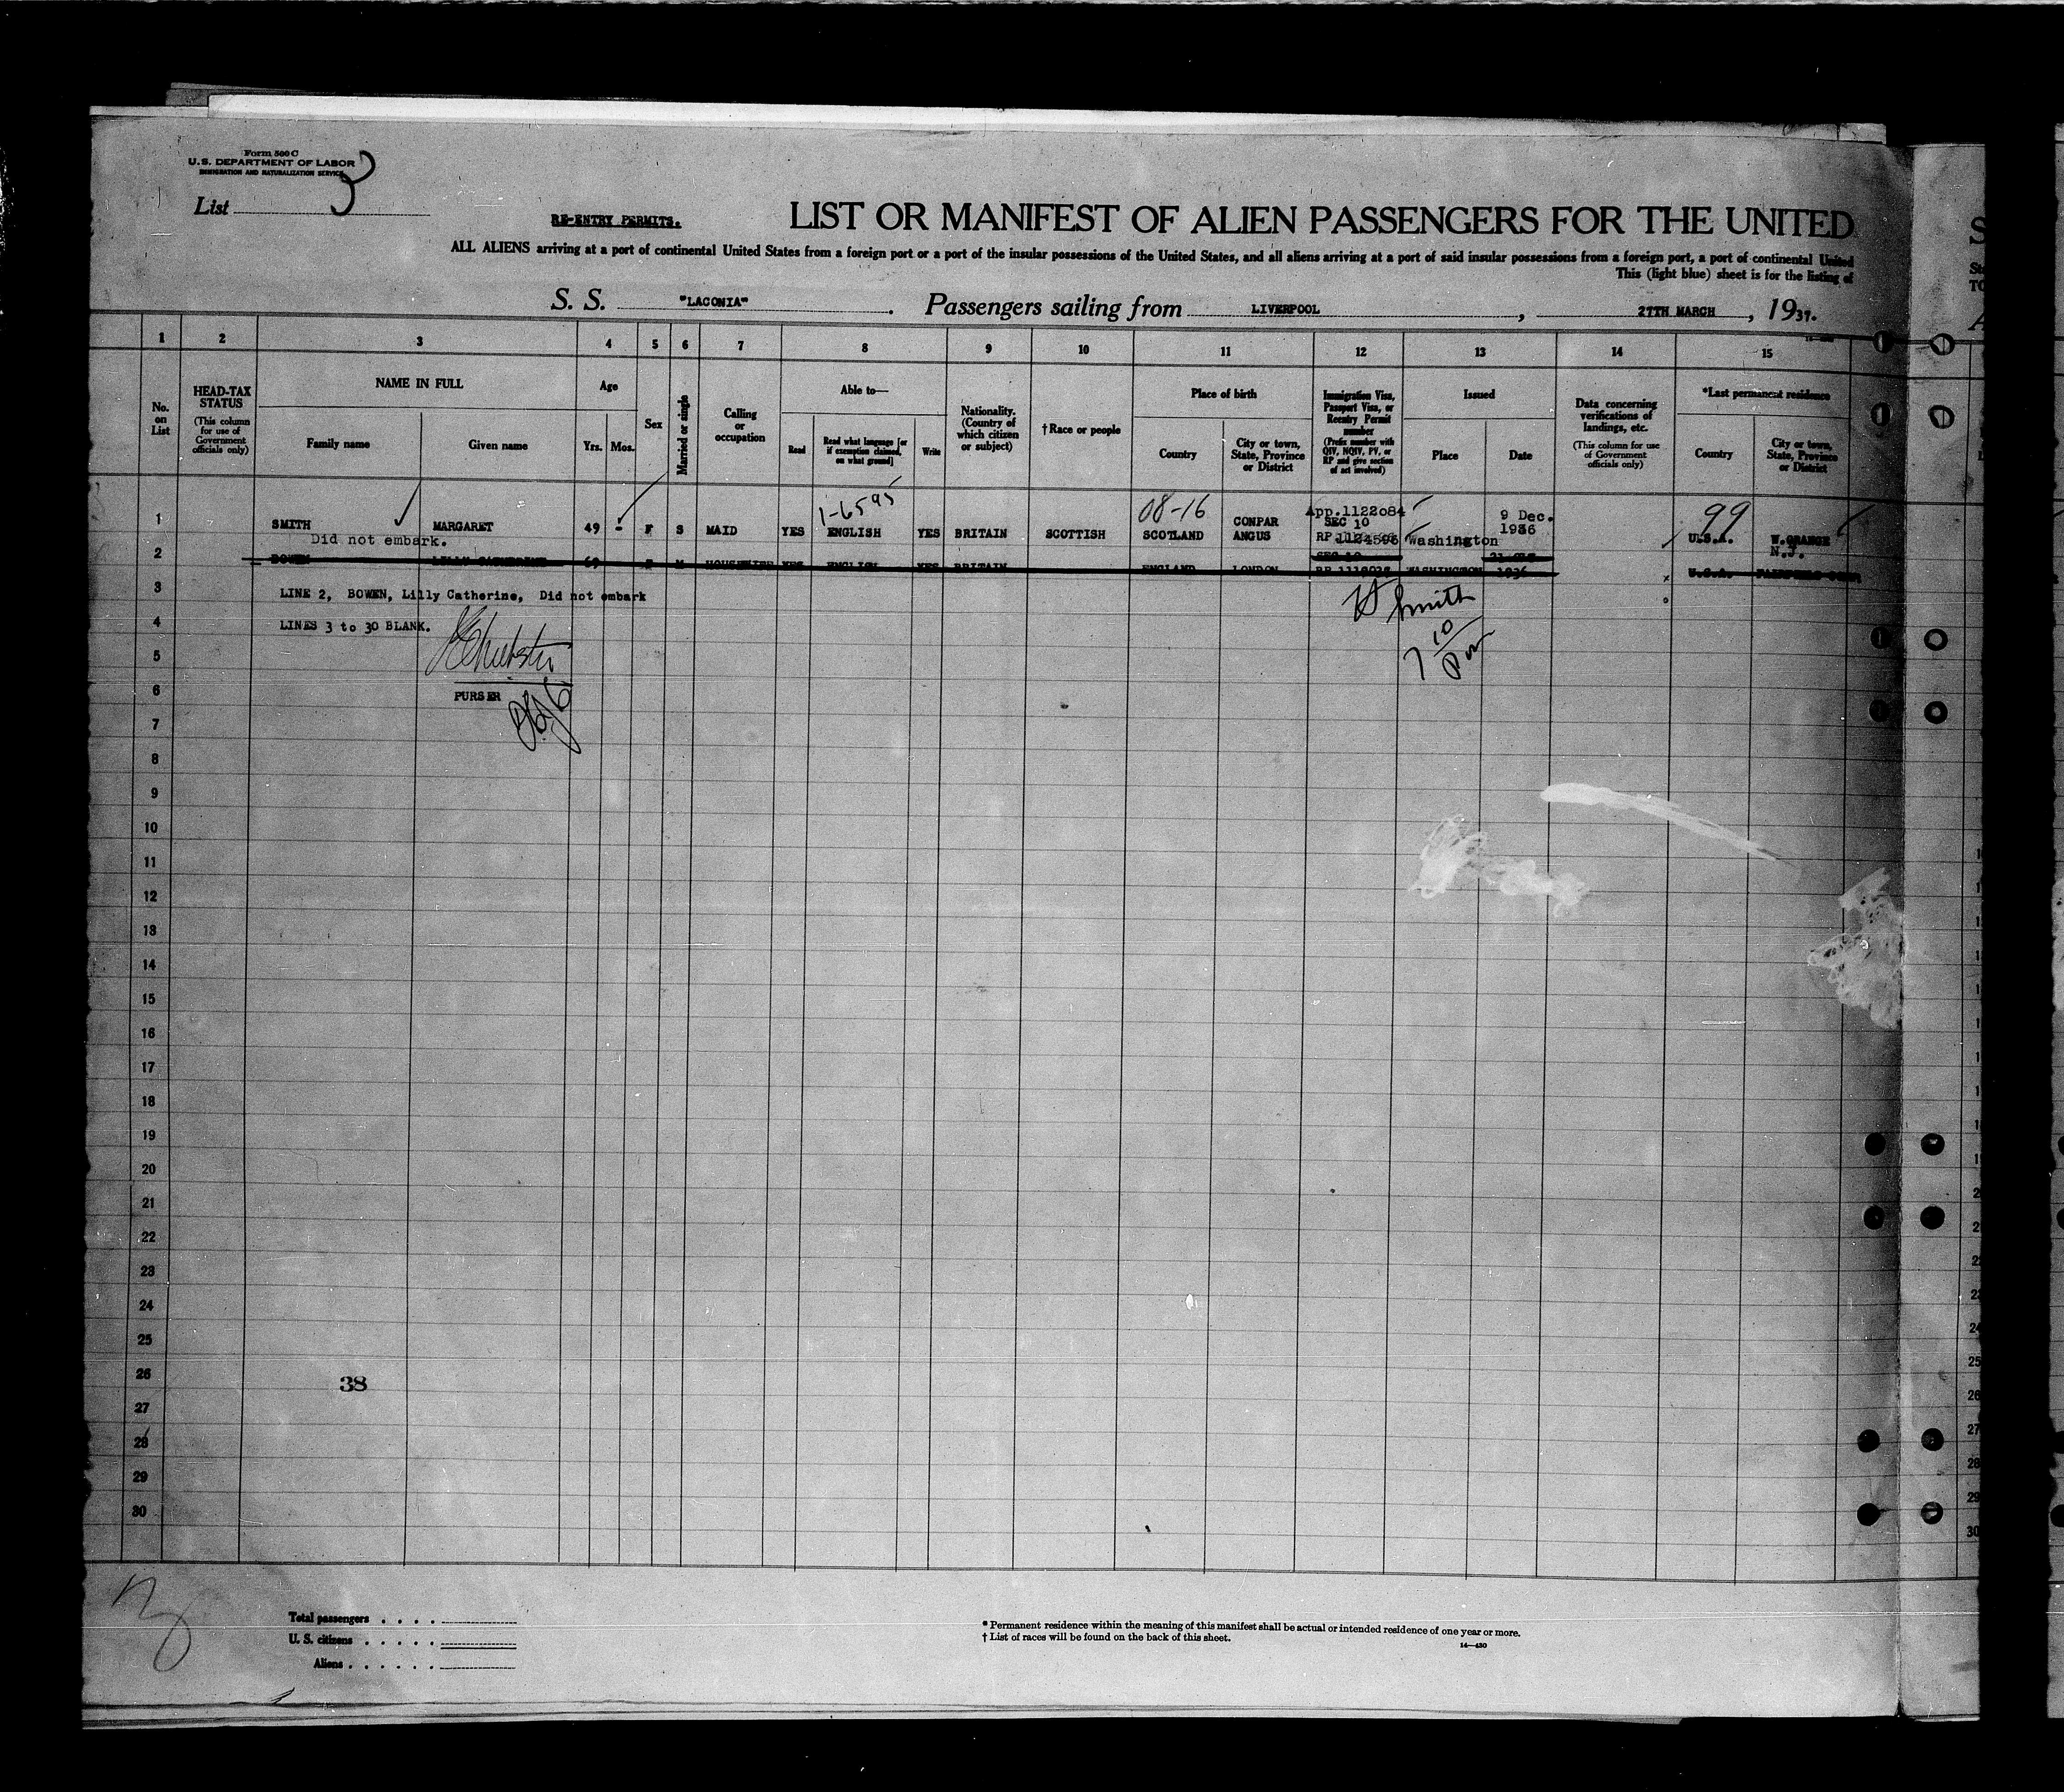 Form 500 C
U.S. DEPARTMENT OF LABOR
IMMIGRATION AND NATURALIZATION SERVICE
List 3
RE-ENTRY PERMITS.
LIST OR MANIFEST OF ALIEN PASSENGERS FOR THE UNITED
ALL ALIENS arriving at a port of continental United States from a foreign port or a port of the insular possessions of the United States, and all aliens arriving at a port of said insular possessions from a foreign port, a port of continental United
This (light blue) sheet is for the listing of
S. S. "LACONIA". Passengers sailing from LIVERPOOL, 27TH MARCH, 1937.
1 2 3 4 5 6 7 8 9 10 11 12 13 14 15
No. on List
HEAD-TAX STATUS (This column for use of Government officials only)
NAME IN FULL
Family name
Given name
Age
Yrs. Mos.
Sex
Married or single
Calling or occupation
Able to—
Read
Read what language [or if exemption claimed, on what ground]
Write
Nationality. (Country of which citizen or subject)
† Race or people
Place of birth
Country
City or town, State, Province or District
Immigration Visa, Passport Visa, or Reentry Permit number (Prefix number with QIV, NQIV, PV, or RP and give section of act involved)
Issued
Place
Date
Data concerning verifications of landings, etc. (This column for use of Government officials only)
*Last permanent residence
Country
City or town, State, Province or District
1-6595 08-16 App.1122084 9 Dec. 99
1 SMITH MARGARET 49 - F S MAID YES ENGLISH YES BRITAIN SCOTTISH SCOTLAND CONPAR ANGUS SEC 10 RP Washington 1936 U.S.A. W.ORANGE N.J.
Did not embark.
2 BOWEN LILLY CATHERINE 69 F M HOUSEWIFE YES ENGLISH YES BRITAIN ENGLAND LONDON SEC 10 RP WASHINGTON 1936 U.S.A.
3 LINE 2, BOWEN, Lilly Catherine, Did not embark
H Smith
4 LINES 3 to 30 BLANK.
7 10/
5
6 PURSER
7
8
9
10
11
12
13
14
15
16
17
18
19
20
21
22
23
24
25
26 38
27
28
29
30
Total passengers . . . .
U. S. citizens . . . . .
Aliens . . . . . .
* Permanent residence within the meaning of this manifest shall be actual or intended residence of one year or more.
† List of races will be found on the back of this sheet.
14—430